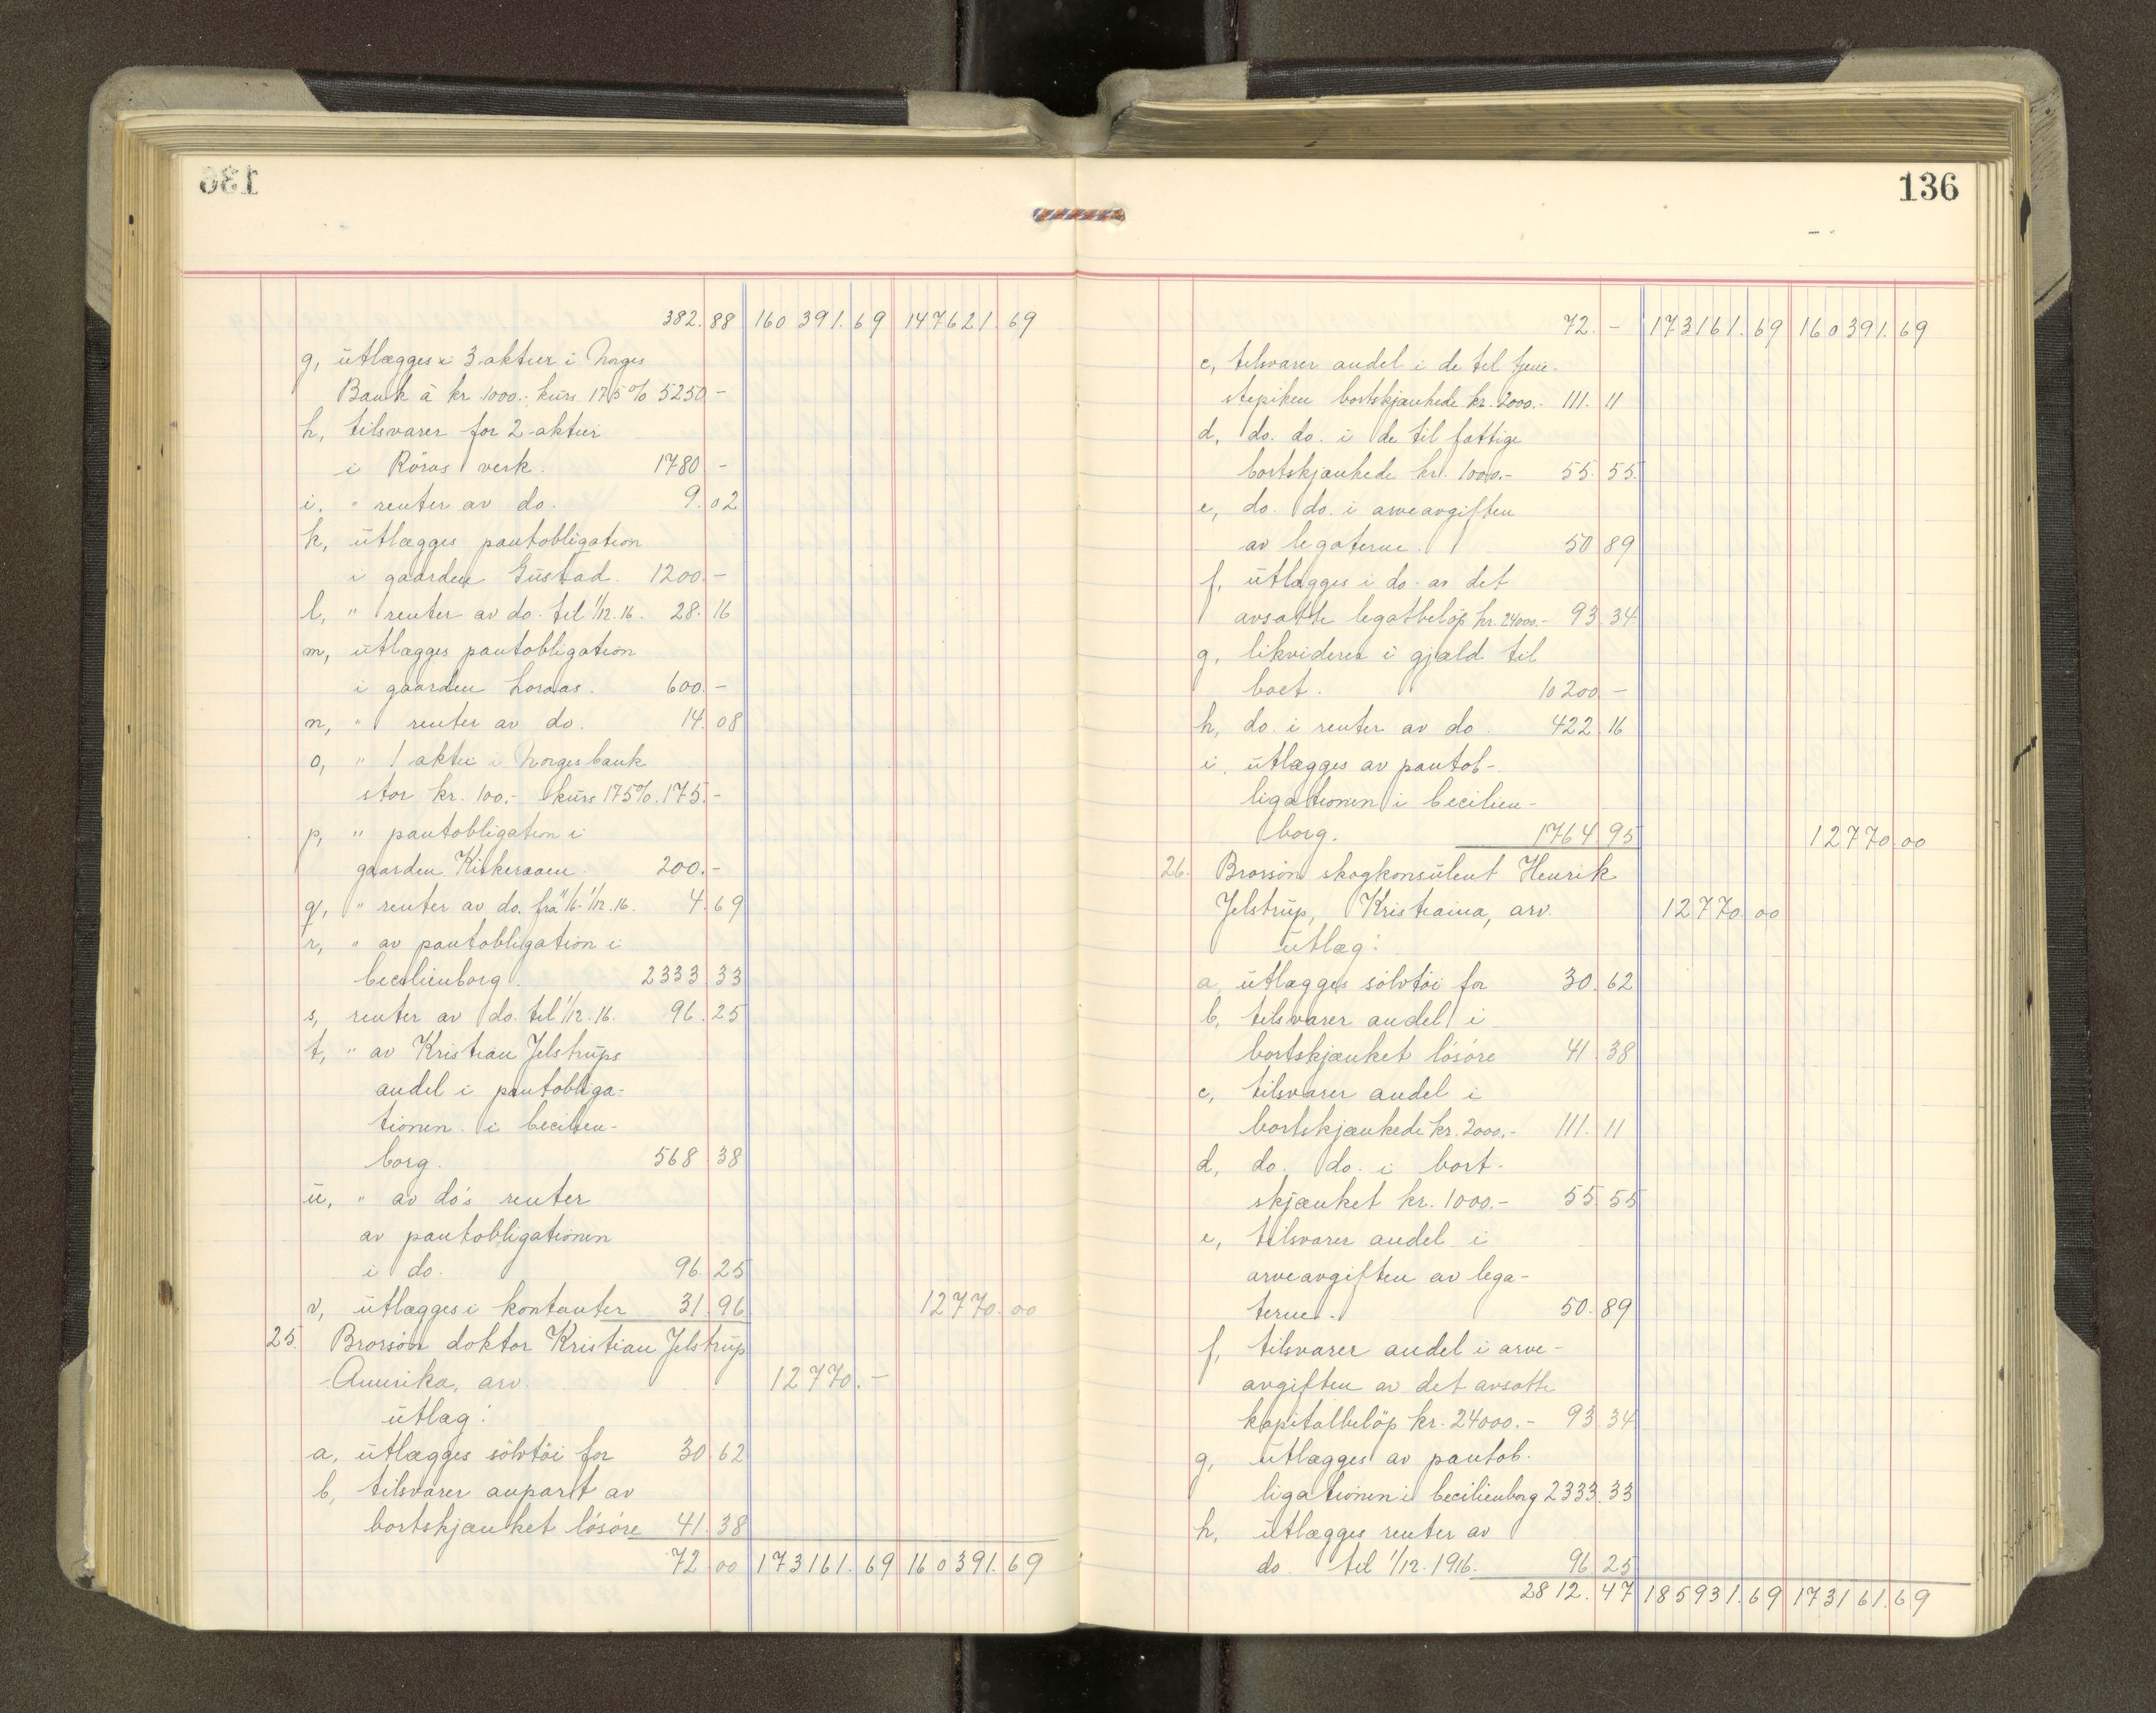 136
382.88 160391.69 147621.69
g, utlægges i 3 aktier i Norges
Bank à kr 1000.- kurs 175% 5250 -
h, tilsvarer for 2 aktier
i Röros verk. 1780 -
i, " renter av do. 9.02
k, utlægges pantobligation
i gaarden Gustad. 1200.-
l, " renter av do. til 1/12.16. 28.16
m, utlægges pantobligation
i gaarden Loraas. 600.-
n, " renter av do. 14.08
o, " 1 aktie i Norges bank
stor kr. 100.- kurs 175%. 175.-
p, " pantobligation i
gaarden 200.-
q, " renter av do. fra 11/6-1/12.16. 4.69
r, " av pantobligation i
Cecilienborg. 2333.33
s, renter av do. til 1/12.16. 96.25
t, " av Kristian Jelstrups
andel i pantobliga-
tionen i Cecilien-
borg. 568.38
u, " av do's renter
av pantobligationen
i do. 96.25
v, utlægges i kontanter 31.96 12770.00
25. Brorsön doktor Kristian Jelstrup
Amerika, arv. 12770.-
Utlæg:
a, utlægges sölvtöi for 30.62
b, tilsvarer anpart av
bortskjænket lösöre 41.38
72 00 173161.69 160391.69
136
72.- 173161.69 160391.69
c, tilsvarer andel i de til tjene-
stepiken bortskjænkede kr. 2000.- 111.11
d, do. do. i de til fattige
bortskjænkede kr. 1000.- 55.55.
e, do. do. i arveavgiften
av legaterne. 50 89
f, utlægges i do. av det
avsatte legatbelöp kr. 24000.- 93.34
g, likvideres i gjæld til
boet. 10200 -
h, do. i renter av do. 422.16
i, utlægges av pantob-
ligationen i Cecilien-
borg. 1764 95 12770.00
26. Brorsön skogkonsulent Henrik
Jelstrup, Kristiania, arv. 12770 00
Utlæg:
a, utlægges sölvtöi for 30.62
b, tilsvarer andel i
bortskjænket lösöre 41.38
c, tilsvarer andel i
bortskjænkede kr. 2000.- 111.11
d, do. do. i bort-
skjænket kr. 1000.- 55 55
e, tilsvarer andel i
arveavgiften av lega-
terne. 50.89
f, tilsvarer andel i arve-
avgiften av det avsatte
kapitalbelöp kr. 24000.- 93.34
g, utlægges av pantob-
ligationen i Cecilienborg 2333.33
h, utlægges renter av
do. til 1/12.1916. 96 25
2812.47 185931.69 173161.69